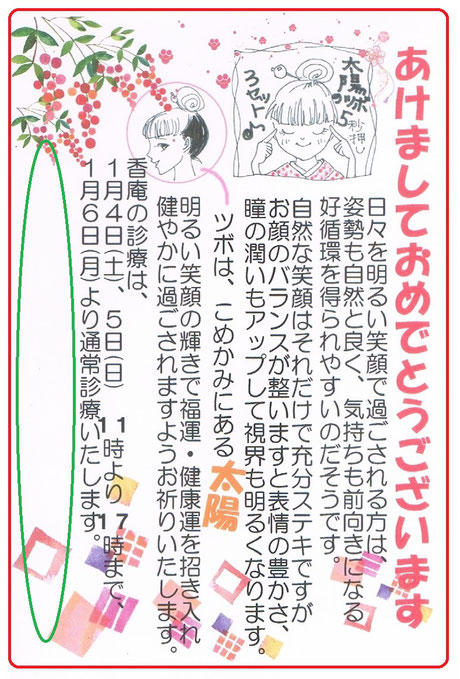 あけましておめでとうございます
太陽
のツボ
5秒押し
3セット♪
日々を明るい笑顔で過ごされる方は、
姿勢も自然と良く、気持ちも前向きになる
好循環を得られやすいのだそうです。
自然な笑顔はそれだけで充分ステキですが
お顔のバランスが整いますと表情の豊かさ、
瞳の潤いもアップして視界も明るくなります。
ツボは、こめかみにある太陽
明るい笑顔の輝きで福運・健康運を招き入れ
健やかに過ごされますようお祈りいたします。
香庵の診療は、
1月4日(土)、5日(日) 11時より17時まで、
1月6日(月)より通常診療いたします。